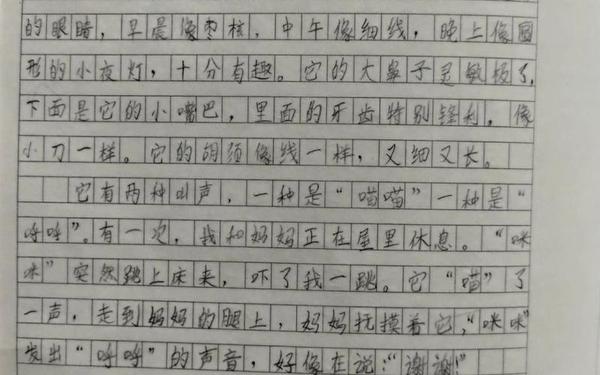 的眼睛，早晨像枣核，中午像细线，晚上像圆
形的小夜灯，十分有趣。它的大鼻子灵敏极了，
下面是它的小嘴巴，里面的牙齿特别锋利，像
小刀一样。它的胡须像线一样，又细又长。
它有两种叫声，一种是“喵喵”一种是“
呼呼”。有一次，我和妈妈正在屋里休息。“咪
咪”突然跳上床来，吓了我一跳。它“喵”了
一声，走到妈妈的腿上，妈妈抚摸着它，“咪咪”
发出“呼呼”的声音，好像在说：“谢谢！”